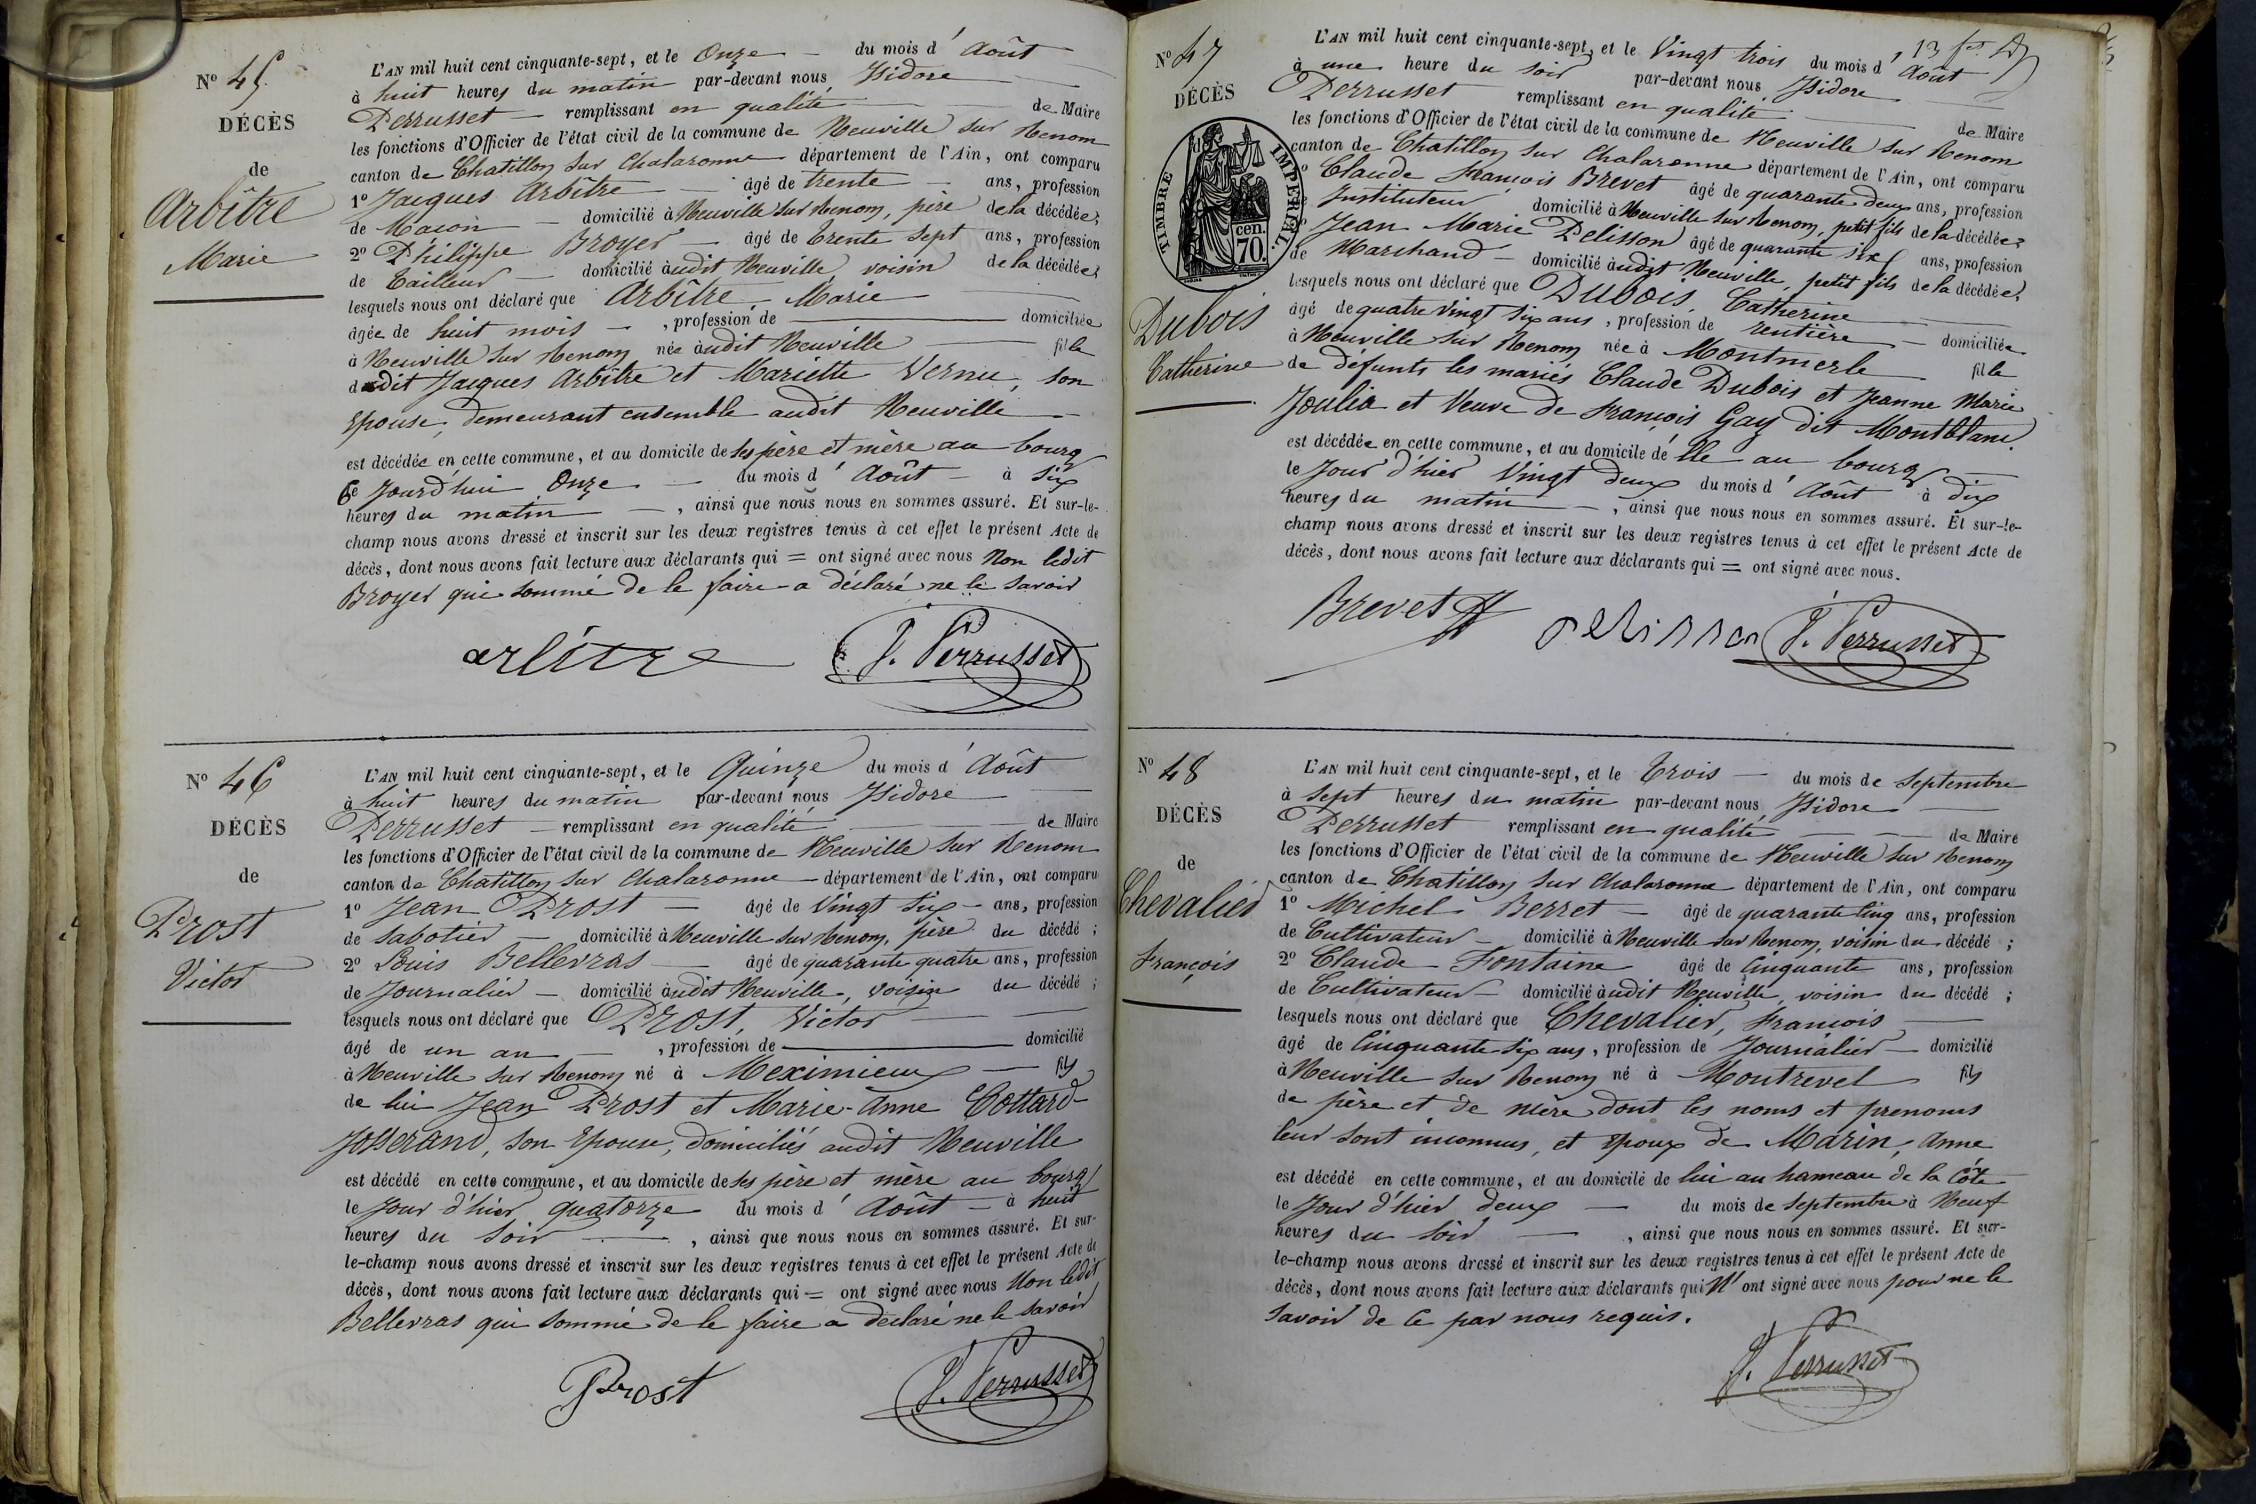 Nº 45.
DÉCÈS
de
Arbître
Marie
L'AN mil huit cent cinquante-sept, et le Onze du mois d'Août
à huit heures du matin par-devant nous Isidore
Perrusset remplissant en qualité de Maire
les fonctions d'Officier de l'état civil de la commune de Neuville sur Renom
canton de Chatillon sur Chalaronne département de l'Ain, ont comparu
1º Jacques Arbître âgé de trente ans, profession
de Maçon domicilié à Neuville sur Renom, père de la décédée;
2º Philippe Broyer âgé de trente sept ans, profession
de Tailleur domicilié audit Neuville, voisin de la décédée;
lesquels nous ont déclaré que Arbître, Marie
âgée de huit mois, profession de domiciliée
à Neuville sur Renom née audit Neuville fille
dudit Jacques Arbître et Mariette Vernu, son
Epouse, demeurant ensemble audit Neuville
est décédée en cette commune, et au domicile de ses père et mère au bourg
Ce Jourd'hui Onze du mois d'Août à six
heures du matin, ainsi que nous nous en sommes assuré. Et sur-le-
champ nous avons dressé et inscrit sur les deux registres tenus à cet effet le présent Acte de
décès, dont nous avons fait lecture aux déclarants qui = ont signé avec nous Non ledit
Broyer qui sommé de le faire a déclaré ne le savoir
arbitre J. Perrusset
Nº 46
DÉCÈS
de
Prost
Victor
L'AN mil huit cent cinquante-sept, et le Quinze du mois d'Août
à huit heures du matin par-devant nous Isidore
Perrusset remplissant en qualité de Maire
les fonctions d'Officier de l'état civil de la commune de Neuville sur Renom
canton de Chatillon sur Chalaronne département de l'Ain, ont comparu
1º Jean Prost âgé de Vingt six ans, profession
de Sabotier domicilié à Neuville sur Renom, père du décédé;
2º Louis Bellevras âgé de quarante quatre ans, profession
de Journalier domicilié audit Neuville, voisin du décédé;
lesquels nous ont déclaré que Prost, Victor
âgé de un an, profession de domicilié
à Neuville sur Renom né à Meximieux fils
de lui Jean Prost et Marie-Anne Cottard-
Josserand, son Epouse, domiciliés audit Neuville
est décédé en cette commune, et au domicile de ses père et mère au bourg
le Jour d'hier quatorze du mois d'Août à huit
heures du Soir, ainsi que nous nous en sommes assuré. Et sur-
le-champ nous avons dressé et inscrit sur les deux registres tenus à cet effet le présent Acte de
décès, dont nous avons fait lecture aux déclarants qui = ont signé avec nous Non ledit
Bellevras qui sommé de le faire a déclaré ne le savoir
Prost J. Perrusset
Nº 47
DÉCÈS
TIMBRE IMPÉRIAL.
cen.
70.
Dubois
Catherine
L'AN mil huit cent cinquante-sept, et le Vingt trois du mois d'Août
à une heure du soir par-devant nous Isidore
Perrusset remplissant en qualité de Maire
les fonctions d'Officier de l'état civil de la commune de Neuville sur Renom
canton de Chatillon sur Chalaronne département de l'Ain, ont comparu
Claude François Brevet âgé de quarante deux ans, profession
Instituteur domicilié à Neuville sur Renom, petit fils de la décédée;
Jean Marie Pelisson âgé de quarante six ans, profession
de Marchand domicilié audit Neuville, petit fils de la décédée;
lesquels nous ont déclaré que Dubois Catherine
âgé de quatre Vingt six ans, profession de rentière domiciliée
à Neuville sur Renom née à Montmerle fille
de défunts les mariés Claude Dubois et Jeanne Marie
Joulia et Veuve de François Gay dit Montblanc
est décédée en cette commune, et au domicile de elle au bourg
le Jour d'hier Vingt deux du mois d'Août à dix
heures du matin, ainsi que nous nous en sommes assuré. Et sur-le-
champ nous avons dressé et inscrit sur les deux registres tenus à cet effet le présent Acte de
décès, dont nous avons fait lecture aux déclarants qui = ont signé avec nous.
Brevet Pelisson J. Perrusset
Nº 48
DÉCÈS
de
Chevalier
François
L'AN mil huit cent cinquante-sept, et le Trois du mois de Septembre
à Sept heures du matin par-devant nous Isidore
Perrusset remplissant en qualité de Maire
les fonctions d'Officier de l'état civil de la commune de Neuville sur Renom
canton de Chatillon sur Chalaronne département de l'Ain, ont comparu
1º Michel Berret âgé de quarante cinq ans, profession
de Cultivateur domicilié à Neuville sur Renom, voisin du décédé;
2º Claude Fontaine âgé de Cinquante ans, profession
de Cultivateur domicilié audit Neuville, voisin du décédé;
lesquels nous ont déclaré que Chevalier, François
âgé de Cinquante six ans, profession de Journalier domicilié
à Neuville sur Renom né à Montrevel fils
de père et de mère dont les noms et prenoms
leur sont inconnus, et époux de Marin, Anne
est décédé en cette commune, et au domicile de lui au hameau de la Côte
le Jour d'hier deux du mois de Septembre à Neuf
heures du Soir, ainsi que nous nous en sommes assuré. Et sur-
le-champ nous avons dressé et inscrit sur les deux registres tenus à cet effet le présent Acte de
décès, dont nous avons fait lecture aux déclarants qui N'ont signé avec nous pour ne le
savoir de ce par nous requis.
J. Perrusset